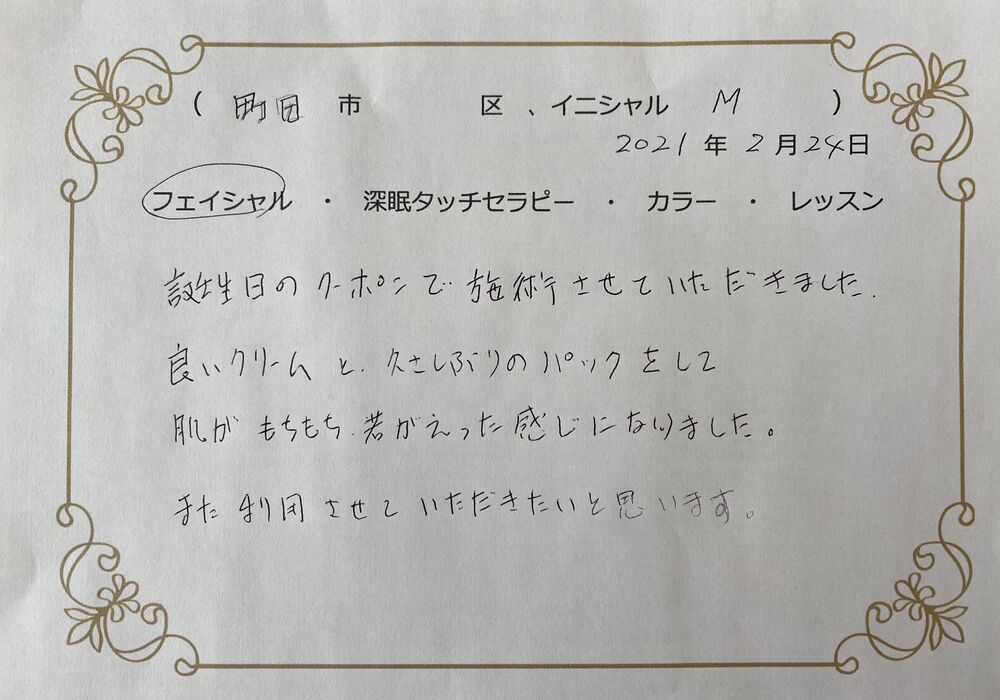 ( 町田 市 区 、イニシャル M )
2021 年 2 月 24日
フェイシャル ・ 深眠タッチセラピー ・ カラー ・ レッスン
誕生日のクーポンで施術させていただきました.
良いクリームと、久さしぶりのパックをして
肌がもちもち、若がえった感じになりました。
また利用させていただきたいと思います。